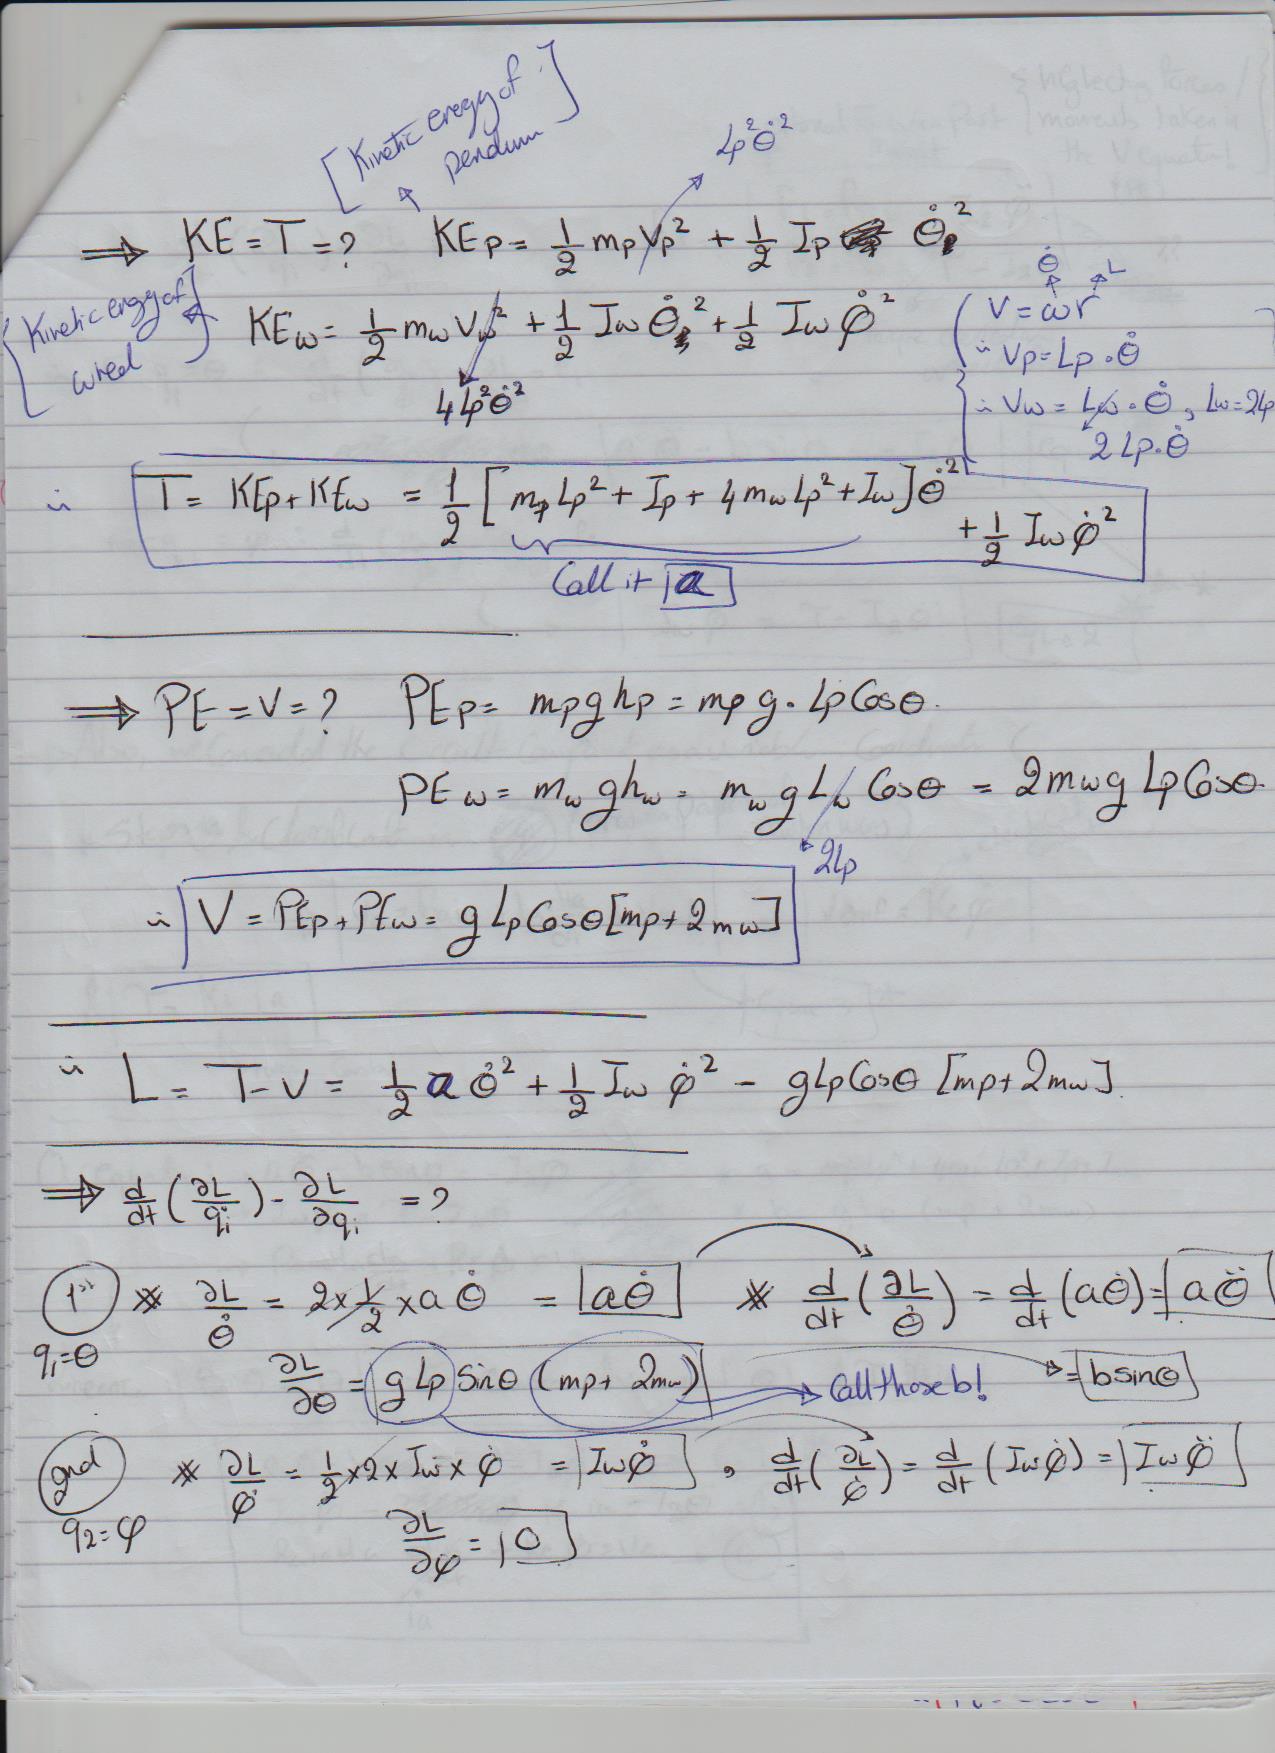 [Kinetic eregy of pendium]
Lp²θ̇²
⇒ KE = T = ? KEp = 1/2 mp Vp² + 1/2 Ip θ̇²
{Kinetic enrgy of wheel}
KEw = 1/2 mw Vw² + 1/2 Iw θ̇² + 1/2 Iw φ̇²
4Lp²θ̇²
θ̇ L
V = ωr
∴ Vp = Lp · θ̇
∴ Vw = Lw · θ̇, Lw = 2Lp
2Lp·θ̇
∴ T = KEp + KEw = 1/2 [mp Lp² + Ip + 4 mw Lp² + Iw] θ̇²
+ 1/2 Iw φ̇²
Call it a
⇒ PE = V = ? PEp = mp g hp = mp g · Lp Cosθ.
PEw = mw g hw = mw g Lw Cosθ = 2mw g Lp Cosθ.
2Lp
∴ V = PEp + PEw = g Lp Cosθ [mp + 2mw]
∴ L = T - V = 1/2 a θ̇² + 1/2 Iw φ̇² - g Lp Cosθ [mp + 2mw].
⇒ d/dt (∂L/q̇i) - ∂L/∂qi = ?
1st * ∂L/θ̇ = 2 × 1/2 × a θ̇ = aθ̇ * d/dt (∂L/θ̇) = d/dt (aθ̇) = aθ̈
q1 = θ
∂L/∂θ = g Lp sinθ (mp + 2mw) Call those b! = b sinθ
2nd * ∂L/φ̇ = 1/2 × 2 × Iw × φ̇ = Iw φ̇ , d/dt (∂L/φ̇) = d/dt (Iw φ̇) = Iw φ̈
q2 = φ
∂L/∂φ = 0